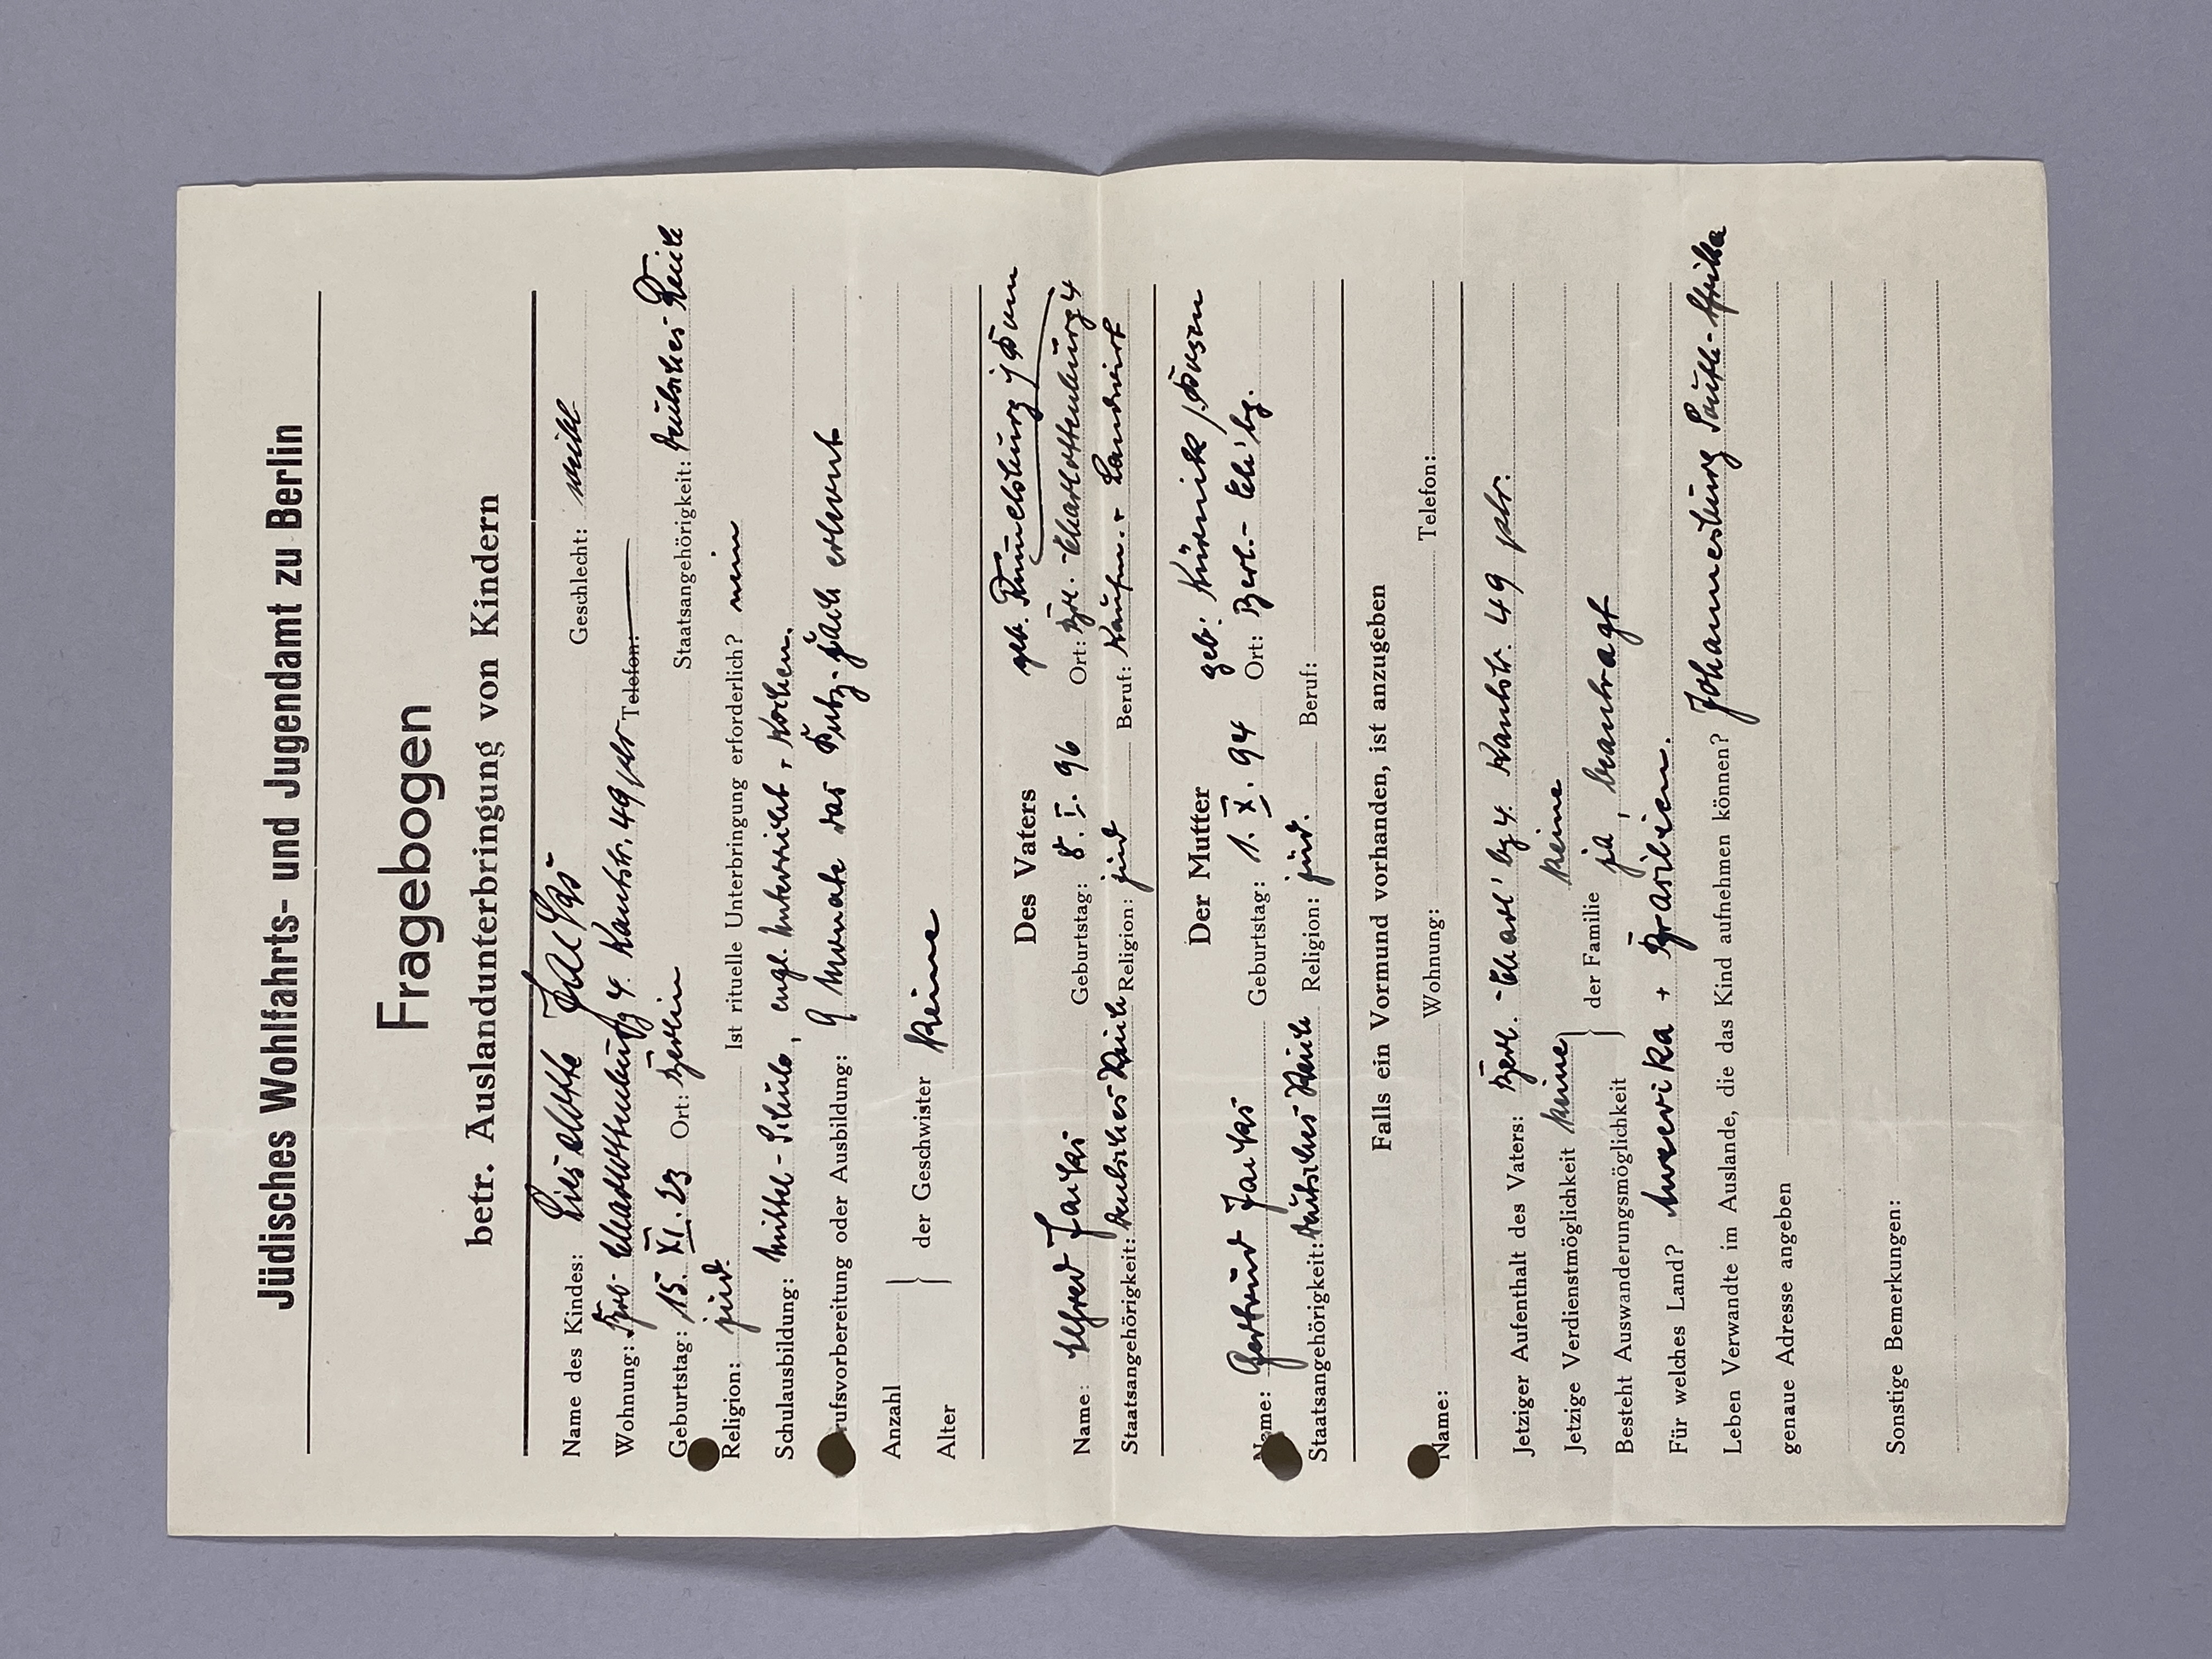 Jüdisches Wohlfahrts- und Jugendamt zu Berlin
Fragebogen
betr. Auslandunterbringung von Kindern
Name des Kindes: Lieselotte Geschlecht: weibl
Wohnung: Charlottenburg 4. Kantstr. 49 ptr Telefon:
Geburtstag: 15. XI. 23 Ort: Berlin Staatsangehörigkeit: Deutsches Reich
Religion: jüd. Ist rituelle Unterbringung erforderlich? nein
Schulausbildung: Mittel-Schule, engl. Unterricht + Kochen.
rufsvorbereitung oder Ausbildung: 9 Monate das Putz-Fach erlernt
Anzahl
Alter
der Geschwister keine
Des Vaters
geb.
Name: Alfred Geburtstag: 8. I. 96 Ort: Brl.-Charlottenburg 4
Staatsangehörigkeit: Deutsches Reich Religion: jüd Beruf: Kaufm. + Landwirt
Der Mutter
geb: Kurnick / Posen
Name: Gertrud Geburtstag: 1. X. 94 Ort: Berl.-
Staatsangehörigkeit: Deutsches Reich Religion: jüd. Beruf:
Falls ein Vormund vorhanden, ist anzugeben
Name: Wohnung: Telefon:
Jetziger Aufenthalt des Vaters: Berl.-Charl'bg 4. Kantstr. 49 ptr.
Jetzige Verdienstmöglichkeit keine keine
Besteht Auswanderungsmöglichkeit der Familie ja, beantragt
Für welches Land? Amerika + Brasilien.
Leben Verwandte im Auslande, die das Kind aufnehmen können? Johannesburg Südk-Afrika
genaue Adresse angeben
Sonstige Bemerkungen: